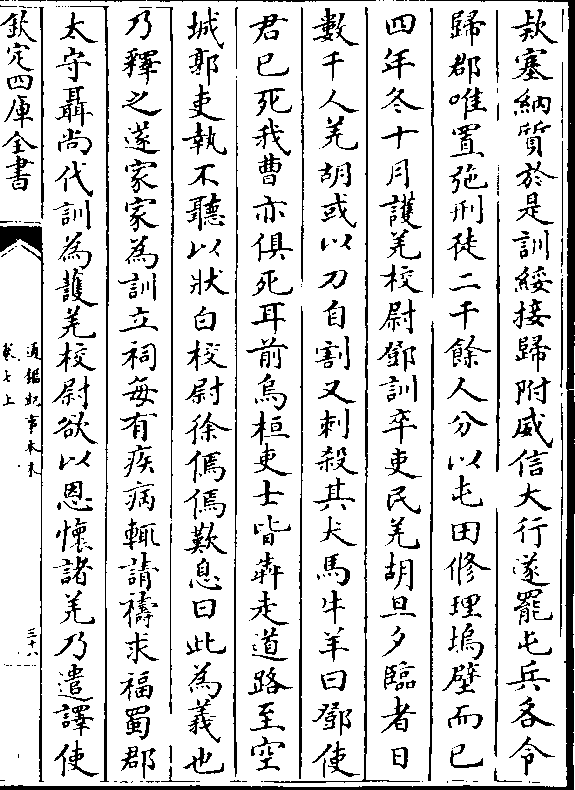 欵塞納質於是訓綏接歸附威信大行遂罷屯兵各令
歸郡唯置弛刑徒二千餘人分以屯田修理塢壁而已
四年冬十月護羌校尉鄧訓卒吏民羌胡旦夕臨者日
數千人羌胡或以刀自割又刺殺其犬馬牛羊曰鄧使
君已死我曹亦俱死耳前烏桓吏士皆犇走道路至空
城郭吏執不聽以狀白校尉徐傿傿歎息曰此為義也
乃釋之遂家家為訓立祠每有疾病輒請禱求福蜀郡
太守聶尚代訓為護羌校尉欲以恩懷諸羌乃遣譯使
欽定四庫全書
通鑑紀事本末
卷七上
三十八